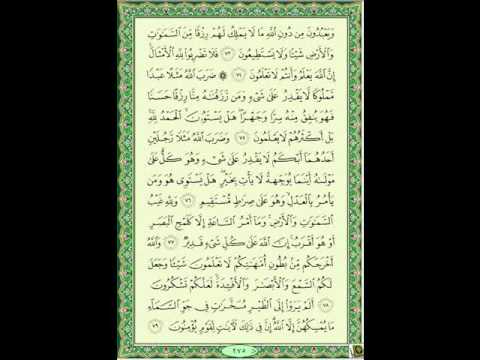 وَيَعْبُدُونَ مِن دُونِ ٱللَّهِ مَا لَا يَمْلِكُ لَهُمْ رِزْقًا مِّنَ ٱلسَّمَٰوَٰتِ
وَٱلْأَرْضِ شَيْـًٔا وَلَا يَسْتَطِيعُونَ ٧٣ فَلَا تَضْرِبُوا۟ لِلَّهِ ٱلْأَمْثَالَ
إِنَّ ٱللَّهَ يَعْلَمُ وَأَنتُمْ لَا تَعْلَمُونَ ٧٤ ۞ ضَرَبَ ٱللَّهُ مَثَلًا عَبْدًا
مَّمْلُوكًا لَّا يَقْدِرُ عَلَىٰ شَىْءٍ وَمَن رَّزَقْنَٰهُ مِنَّا رِزْقًا حَسَنًا
فَهُوَ يُنفِقُ مِنْهُ سِرًّا وَجَهْرًا هَلْ يَسْتَوُۥنَ ٱلْحَمْدُ لِلَّهِ
بَلْ أَكْثَرُهُمْ لَا يَعْلَمُونَ ٧٥ وَضَرَبَ ٱللَّهُ مَثَلًا رَّجُلَيْنِ
أَحَدُهُمَآ أَبْكَمُ لَا يَقْدِرُ عَلَىٰ شَىْءٍ وَهُوَ كَلٌّ عَلَىٰ
مَوْلَىٰهُ أَيْنَمَا يُوَجِّههُّ لَا يَأْتِ بِخَيْرٍ هَلْ يَسْتَوِى هُوَ وَمَن
يَأْمُرُ بِٱلْعَدْلِ وَهُوَ عَلَىٰ صِرَٰطٍ مُّسْتَقِيمٍ ٧٦ وَلِلَّهِ غَيْبُ
ٱلسَّمَٰوَٰتِ وَٱلْأَرْضِ وَمَآ أَمْرُ ٱلسَّاعَةِ إِلَّا كَلَمْحِ ٱلْبَصَرِ
أَوْ هُوَ أَقْرَبُ إِنَّ ٱللَّهَ عَلَىٰ كُلِّ شَىْءٍ قَدِيرٌ ٧٧ وَٱللَّهُ
أَخْرَجَكُم مِّنۢ بُطُونِ أُمَّهَٰتِكُمْ لَا تَعْلَمُونَ شَيْـًٔا وَجَعَلَ
لَكُمُ ٱلسَّمْعَ وَٱلْأَبْصَٰرَ وَٱلْأَفْـِٔدَةَ لَعَلَّكُمْ تَشْكُرُونَ
٧٨ أَلَمْ يَرَوْا۟ إِلَى ٱلطَّيْرِ مُسَخَّرَٰتٍ فِى جَوِّ ٱلسَّمَآءِ
مَا يُمْسِكُهُنَّ إِلَّا ٱللَّهُ إِنَّ فِى ذَٰلِكَ لَءَايَٰتٍ لِّقَوْمٍ يُؤْمِنُونَ ٧٩
٢٧٥